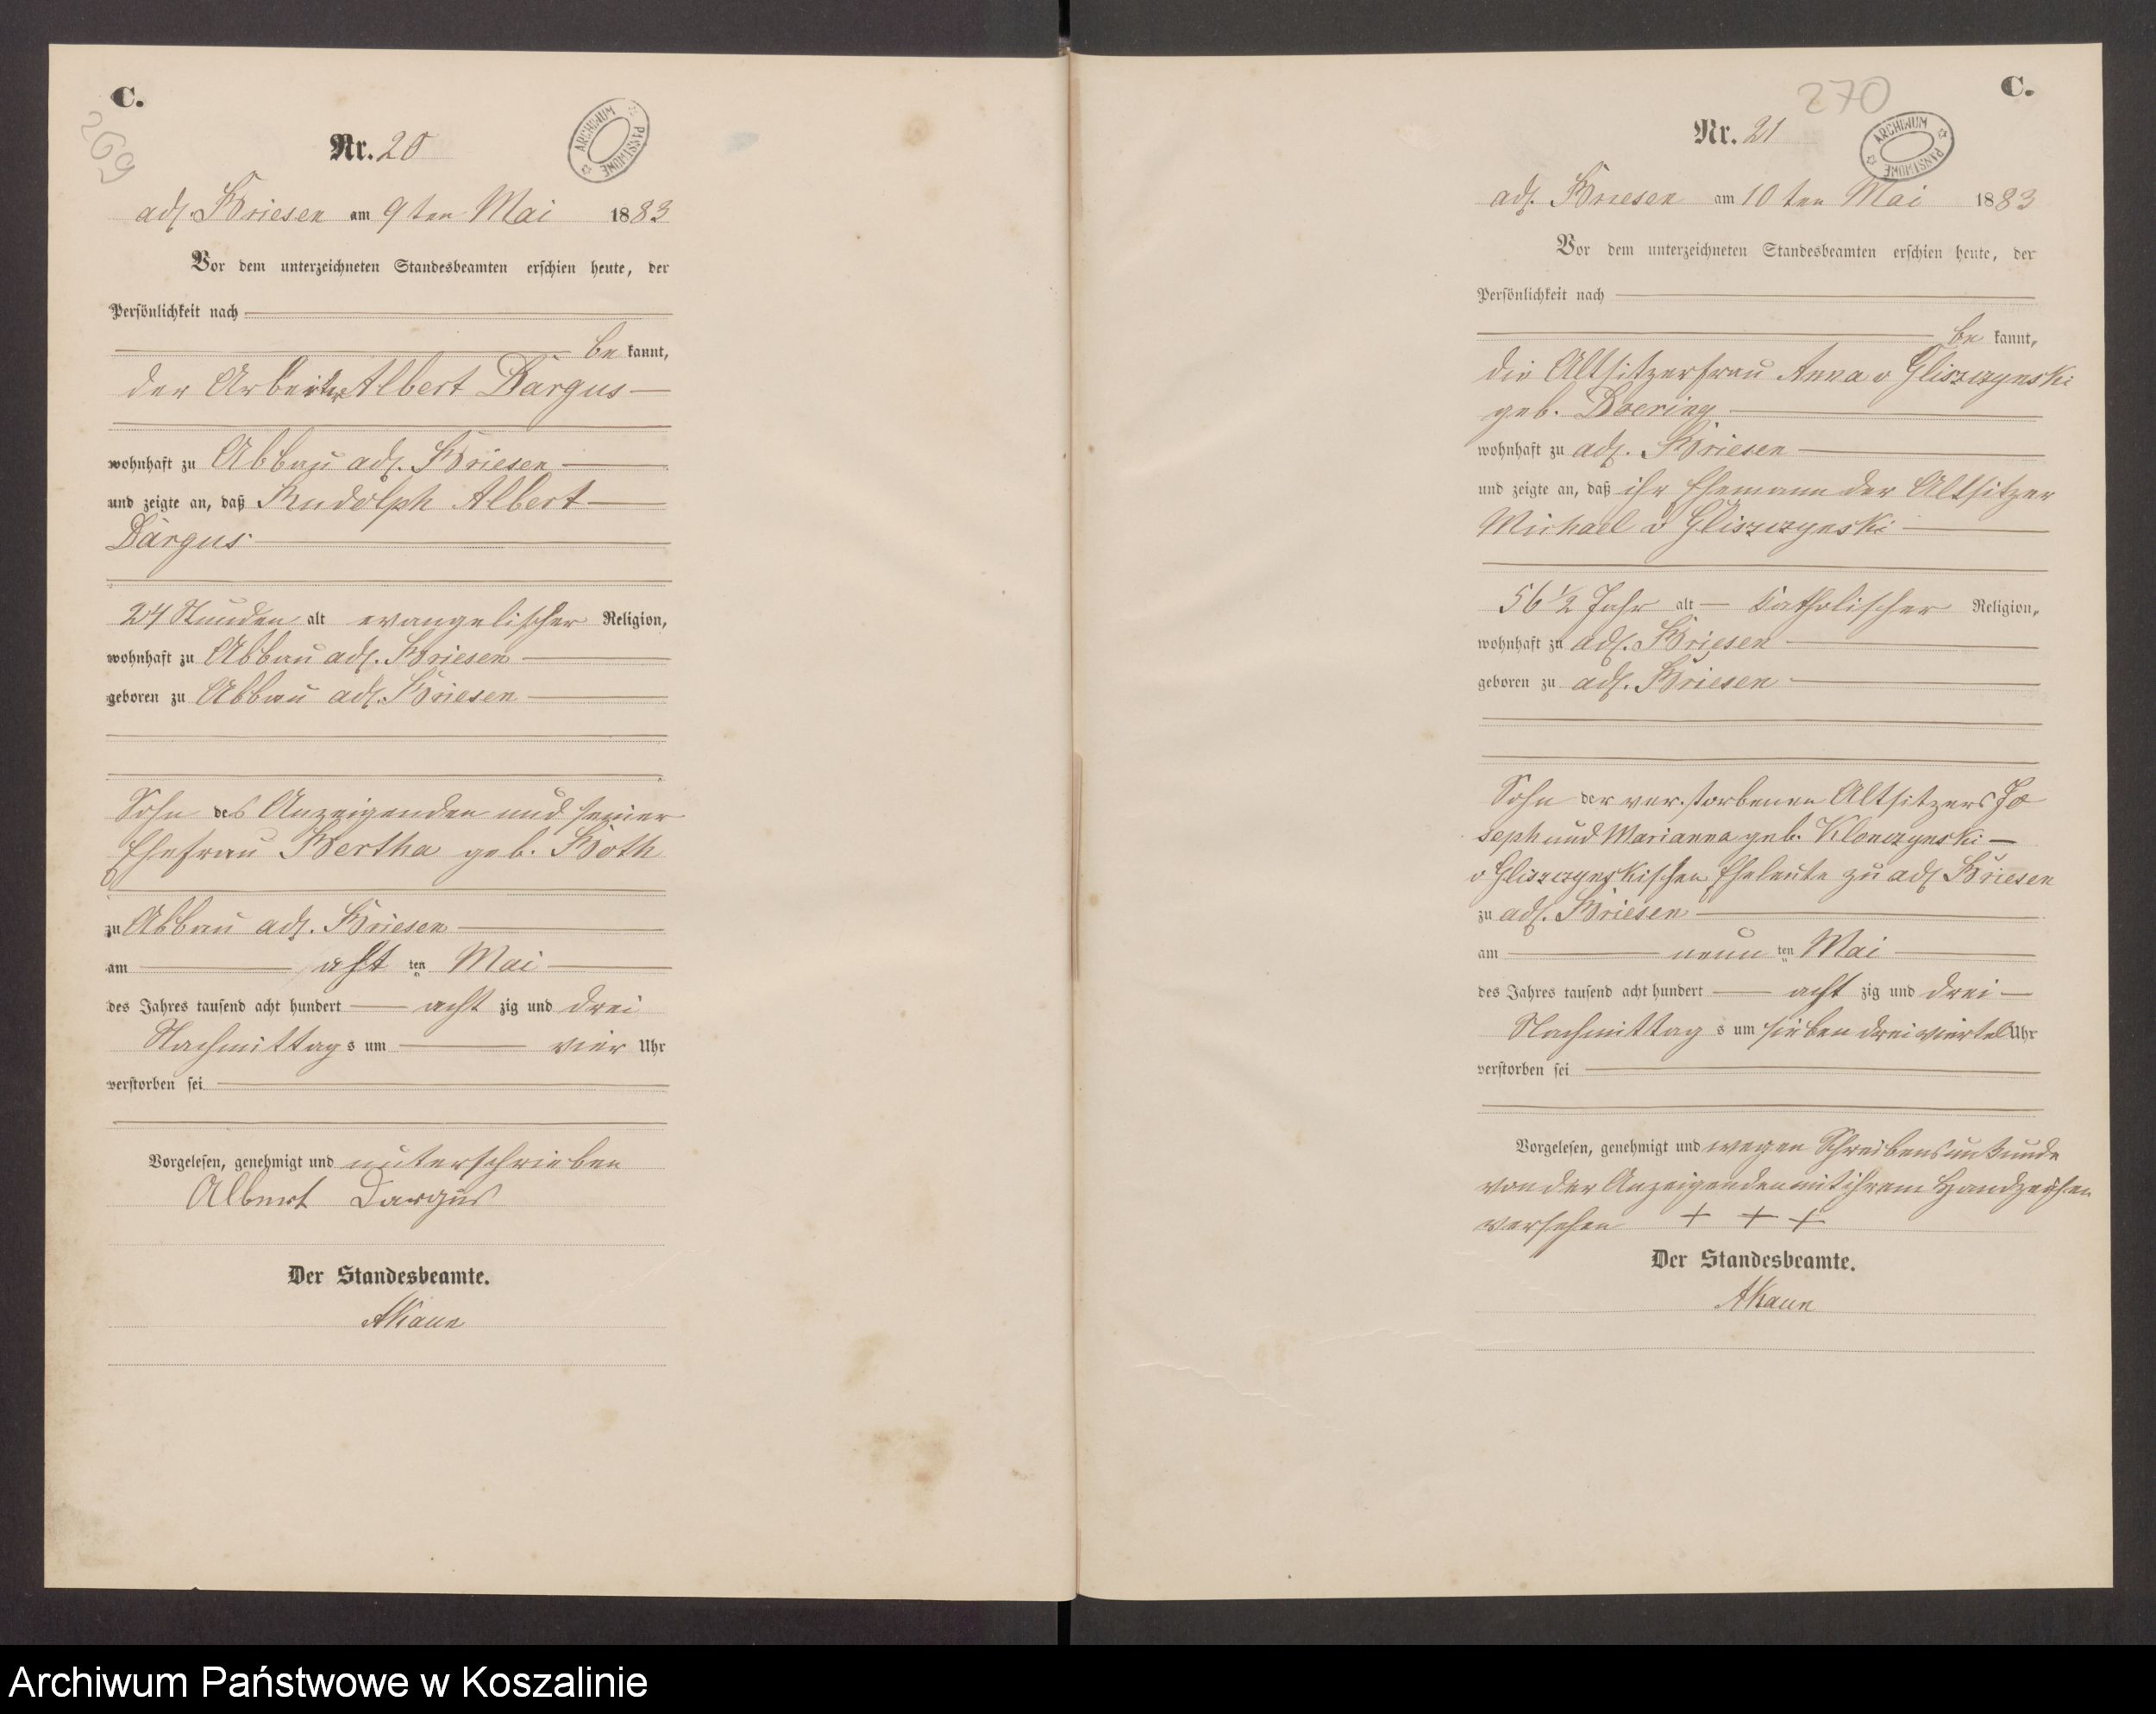 C.
269
Nr. 20
ARCHIWUM PAŃSTWOWE
adl. Briesen am 9ten Mai 1883
Vor dem unterzeichneten Standesbeamten erschien heute, der
Persönlichkeit nach
be kannt,
der Arbeiter Albert Dargus
wohnhaft zu Abbau adl. Briesen
und zeigte an, daß Rudolph Albert
Dargus
24 Stunden alt evangelischer Religion,
wohnhaft zu Abbau adl. Briesen
geboren zu Abbau adl. Briesen
Sohn des Anzeigenden und seiner
Ehefrau Bertha geb. Both
zu Abbau adl. Briesen
am acht ten Mai
des Jahres tausend acht hundert acht zig und drei
Nachmittags um vier Uhr
verstorben sei
Vorgelesen, genehmigt und unterschrieben
Albert Dargus
Der Standesbeamte.
AKaun
C.
270
Nr. 21
ARCHIWUM PAŃSTWOWE
adl. Briesen am 10ten Mai 1883
Vor dem unterzeichneten Standesbeamten erschien heute, der
Persönlichkeit nach
be kannt,
die Altsitzerfrau Anna v Gliszczynski
geb. Doering
wohnhaft zu adl. Briesen
und zeigte an, daß ihr Ehemann der Altsitzer
Michael v Gliszczynski
56 1/2 Jahr alt katholischer Religion,
wohnhaft zu adl. Briesen
geboren zu adl. Briesen
Sohn der verstorbenen Altsitzers Jo
seph und Marianna geb. Klonczynski
v Gliszczynskischen Eheleute zu adl Briesen
zu adl. Briesen
am neun ten Mai
des Jahres tausend acht hundert acht zig und drei
Nachmittag s um sieben dreiviertel Uhr
verstorben sei
Vorgelesen, genehmigt und wegen Schreibensunkunde
von der Anzeigenden mit ihrem Handzeichen
versehen + + +
Der Standesbeamte.
AKaun
Archiwum Państwowe w Koszalinie